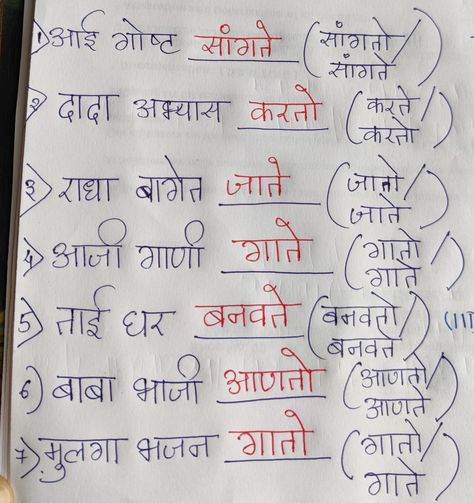 १) आई गोष्ट सांगते (सांगतो/सांगते)
२) दादा अभ्यास करतो (करते/करतो)
३) राधा बागेत जाते (जातो/जाते)
४) आजी गाणी गाते (गातो/गाते)
5) ताई घर बनवते (बनवतो/बनवते) (III
6) बाबा भाजी आणतो (आणतो/आणते)
7) मुलगा भजन गातो (गातो/गाते)